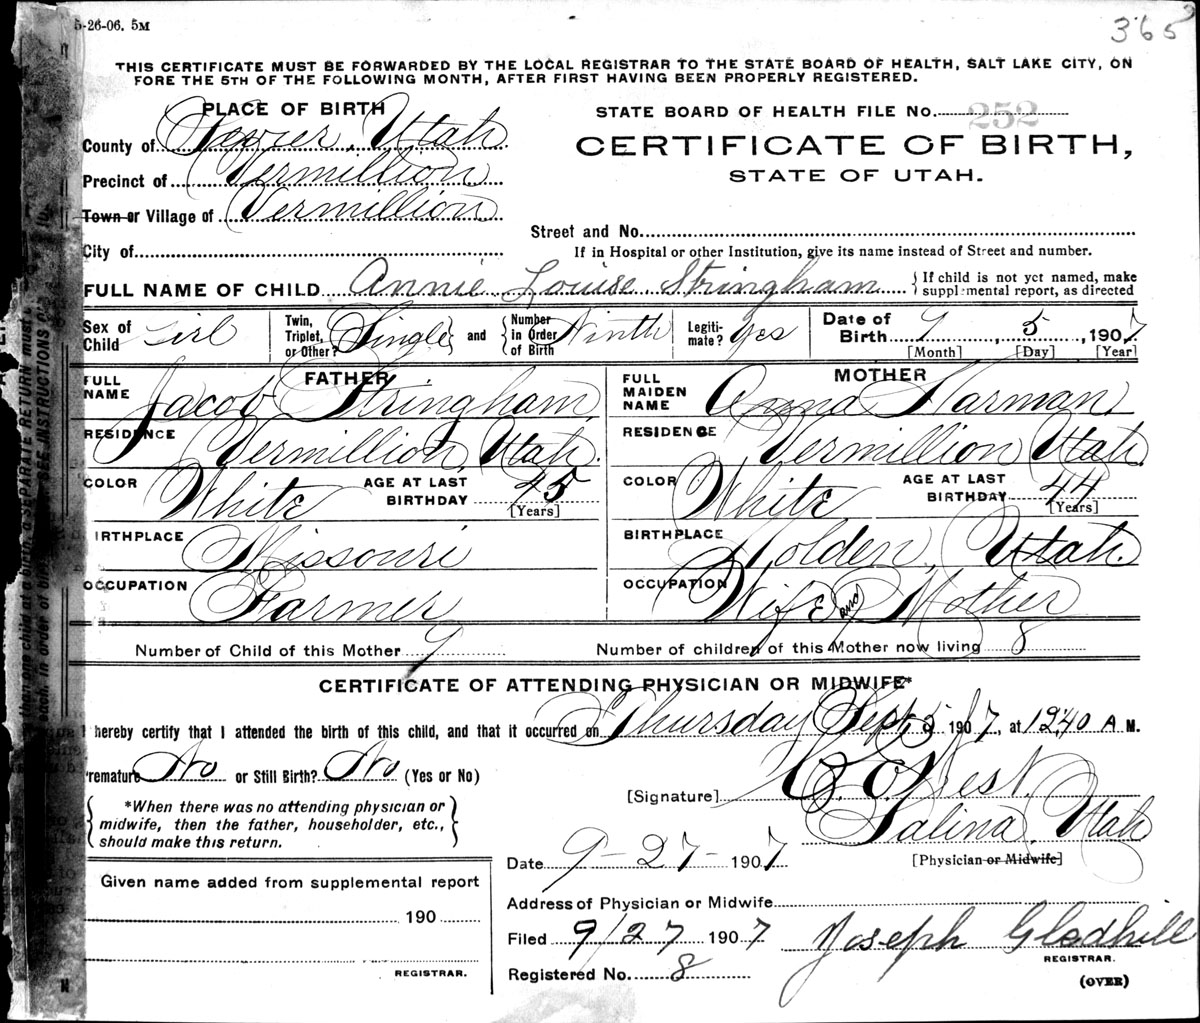 5-26-06. 5M
365
THIS CERTIFICATE MUST BE FORWARDED BY THE LOCAL REGISTRAR TO THE STATE BOARD OF HEALTH, SALT LAKE CITY, ON
FORE THE 5TH OF THE FOLLOWING MONTH, AFTER FIRST HAVING BEEN PROPERLY REGISTERED.
PLACE OF BIRTH
STATE BOARD OF HEALTH FILE No. 252
County of Sevier, Utah
CERTIFICATE OF BIRTH,
Precinct of Vermillion
STATE OF UTAH.
Town or Village of Vermillion
Street and No.
City of
If in Hospital or other Institution, give its name instead of Street and number.
FULL NAME OF CHILD Annie Louise Stringham { If child is not yet named, make supplemental report, as directed
Sex of Child Girl
Twin, Triplet, or Other? Single } and { Number in Order of Birth Ninth
Legitimate? Yes
Date of Birth 9, 5, 1907
[Month] [Day] [Year]
FATHER
MOTHER
FULL NAME Jacob Stringham
FULL MAIDEN NAME Anna Harman
RESIDENCE Vermillion, Utah.
RESIDENCE Vermillion Utah.
COLOR White AGE AT LAST BIRTHDAY 45 [Years]
COLOR White AGE AT LAST BIRTHDAY 44 [Years]
IRTHPLACE Missouri
BIRTHPLACE Holden, Utah.
OCCUPATION Farmer
OCCUPATION Wife and Mother
Number of Child of this Mother 9
Number of children of this Mother now living 8
CERTIFICATE OF ATTENDING PHYSICIAN OR MIDWIFE*
I hereby certify that I attended the birth of this child, and that it occurred on Thursday Sept 5 1907, at 12,40 A M.
remature No or Still Birth? No (Yes or No)
[Signature] West.
*When there was no attending physician or
midwife, then the father, householder, etc.,
should make this return.
Salina, Utah
[Physician or Midwife]
Date 9-27-1907.
Given name added from supplemental report
Address of Physician or Midwife
190
Filed 9/27 1907 Joseph Gledhill
REGISTRAR.
Registered No. 8
REGISTRAR.
(OVER)